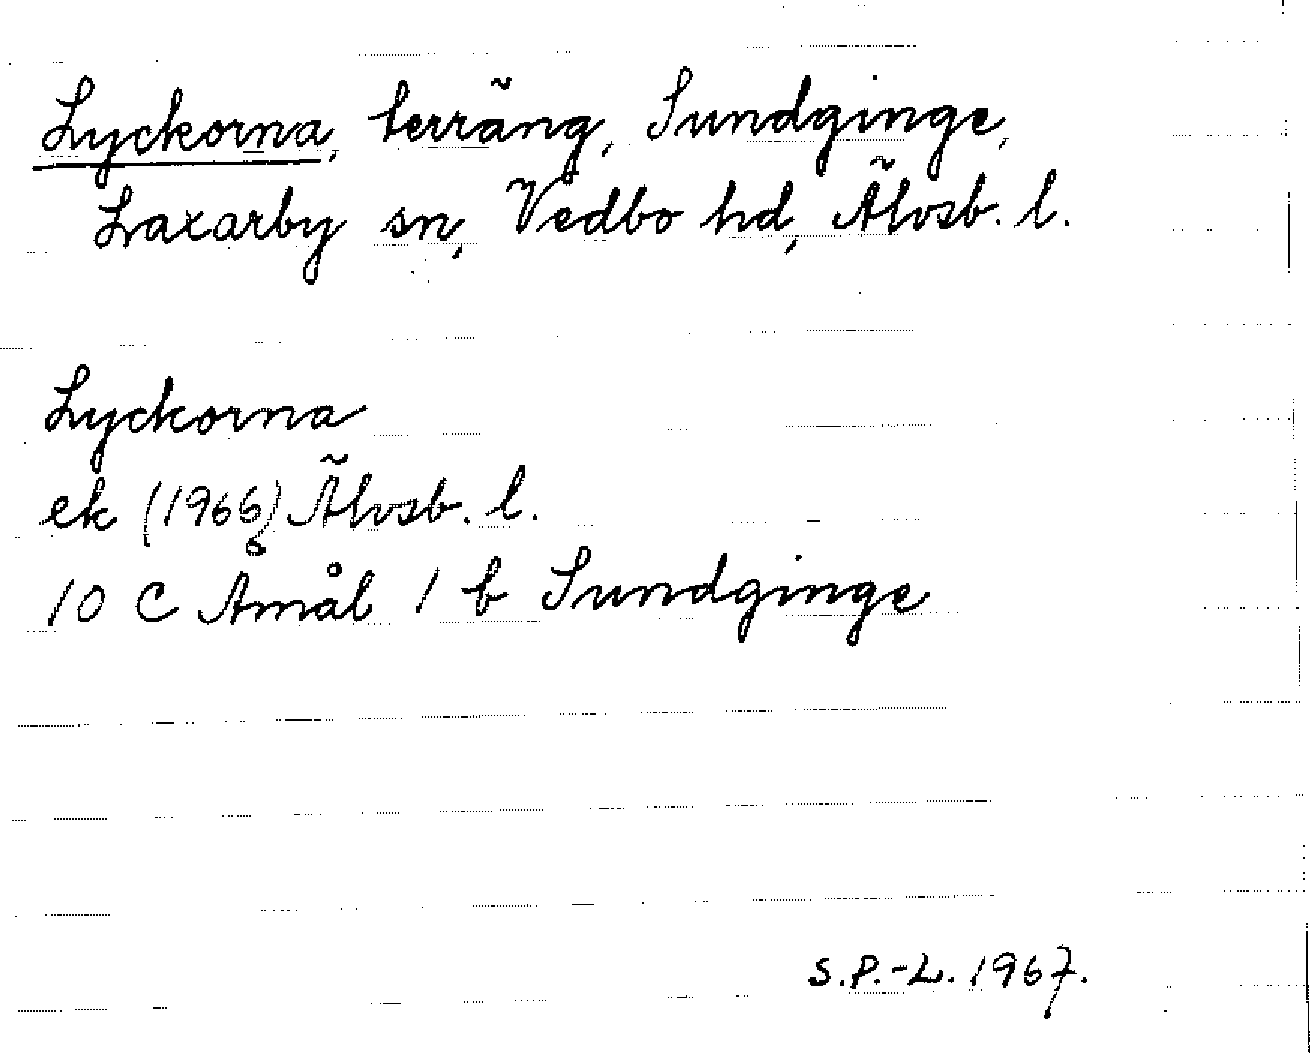 Lyckorna, terräng, Sundginge,
Laxarby sn, Vedbo hd, Älvsb. l.
Lyckorna
ek (1966) Älvsb. l.
10 C Åmål 1 b Sundginge
S.P.-L. 1967.